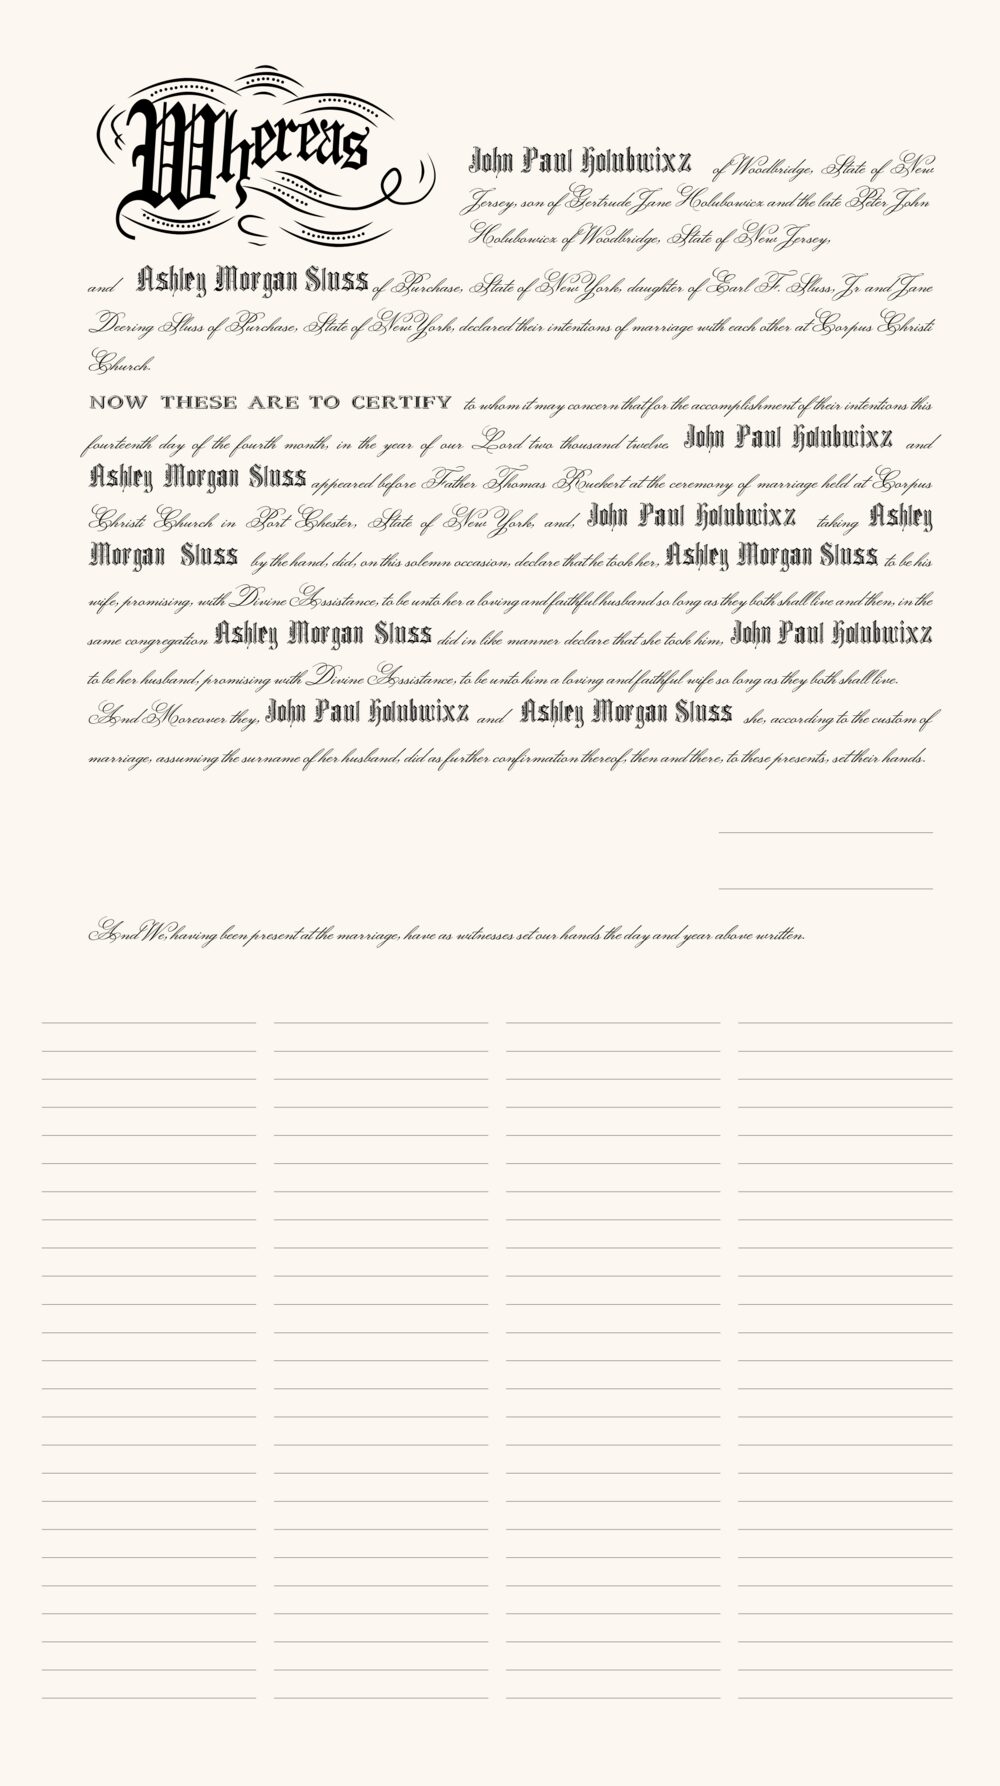 Whereas John Paul Holubwixz of Woodbridge, State of New
Jersey, son of Gertrude Jane Holubowicz and the late Peter John
Holubowicz of Woodbridge, State of New Jersey,
and Ashley Morgan Sluss of Purchase, State of New York, daughter of Earl F. Sluss, Jr and Jane
Deering Sluss of Purchase, State of New York, declared their intentions of marriage with each other at Corpus Christi
Church.
NOW THESE ARE TO CERTIFY to whom it may concern that for the accomplishment of their intentions this
fourteenth day of the fourth month, in the year of our Lord two thousand twelve John Paul Holubwixz and
Ashley Morgan Sluss appeared before Father Thomas Ruekert at the ceremony of marriage held at Corpus
Christi Church in Port Chester, State of New York, and, John Paul Holubwixz taking Ashley
Morgan Sluss by the hand, did, on this solemn occasion, declare that he took her, Ashley Morgan Sluss to be his
wife, promising, with Divine Assistance, to be unto her a loving and faithful husband so long as they both shall live and then, in the
same congregation Ashley Morgan Sluss did in like manner declare that she took him, John Paul Holubwixz
to be her husband, promising with Divine Assistance, to be unto him a loving and faithful wife so long as they both shall live.
And Moreover they, John Paul Holubwixz and Ashley Morgan Sluss she, according to the custom of
marriage, assuming the surname of her husband, did as further confirmation thereof, then and there, to these presents, set their hands.
And We, having been present at the marriage, have as witnesses set our hands the day and year above written.